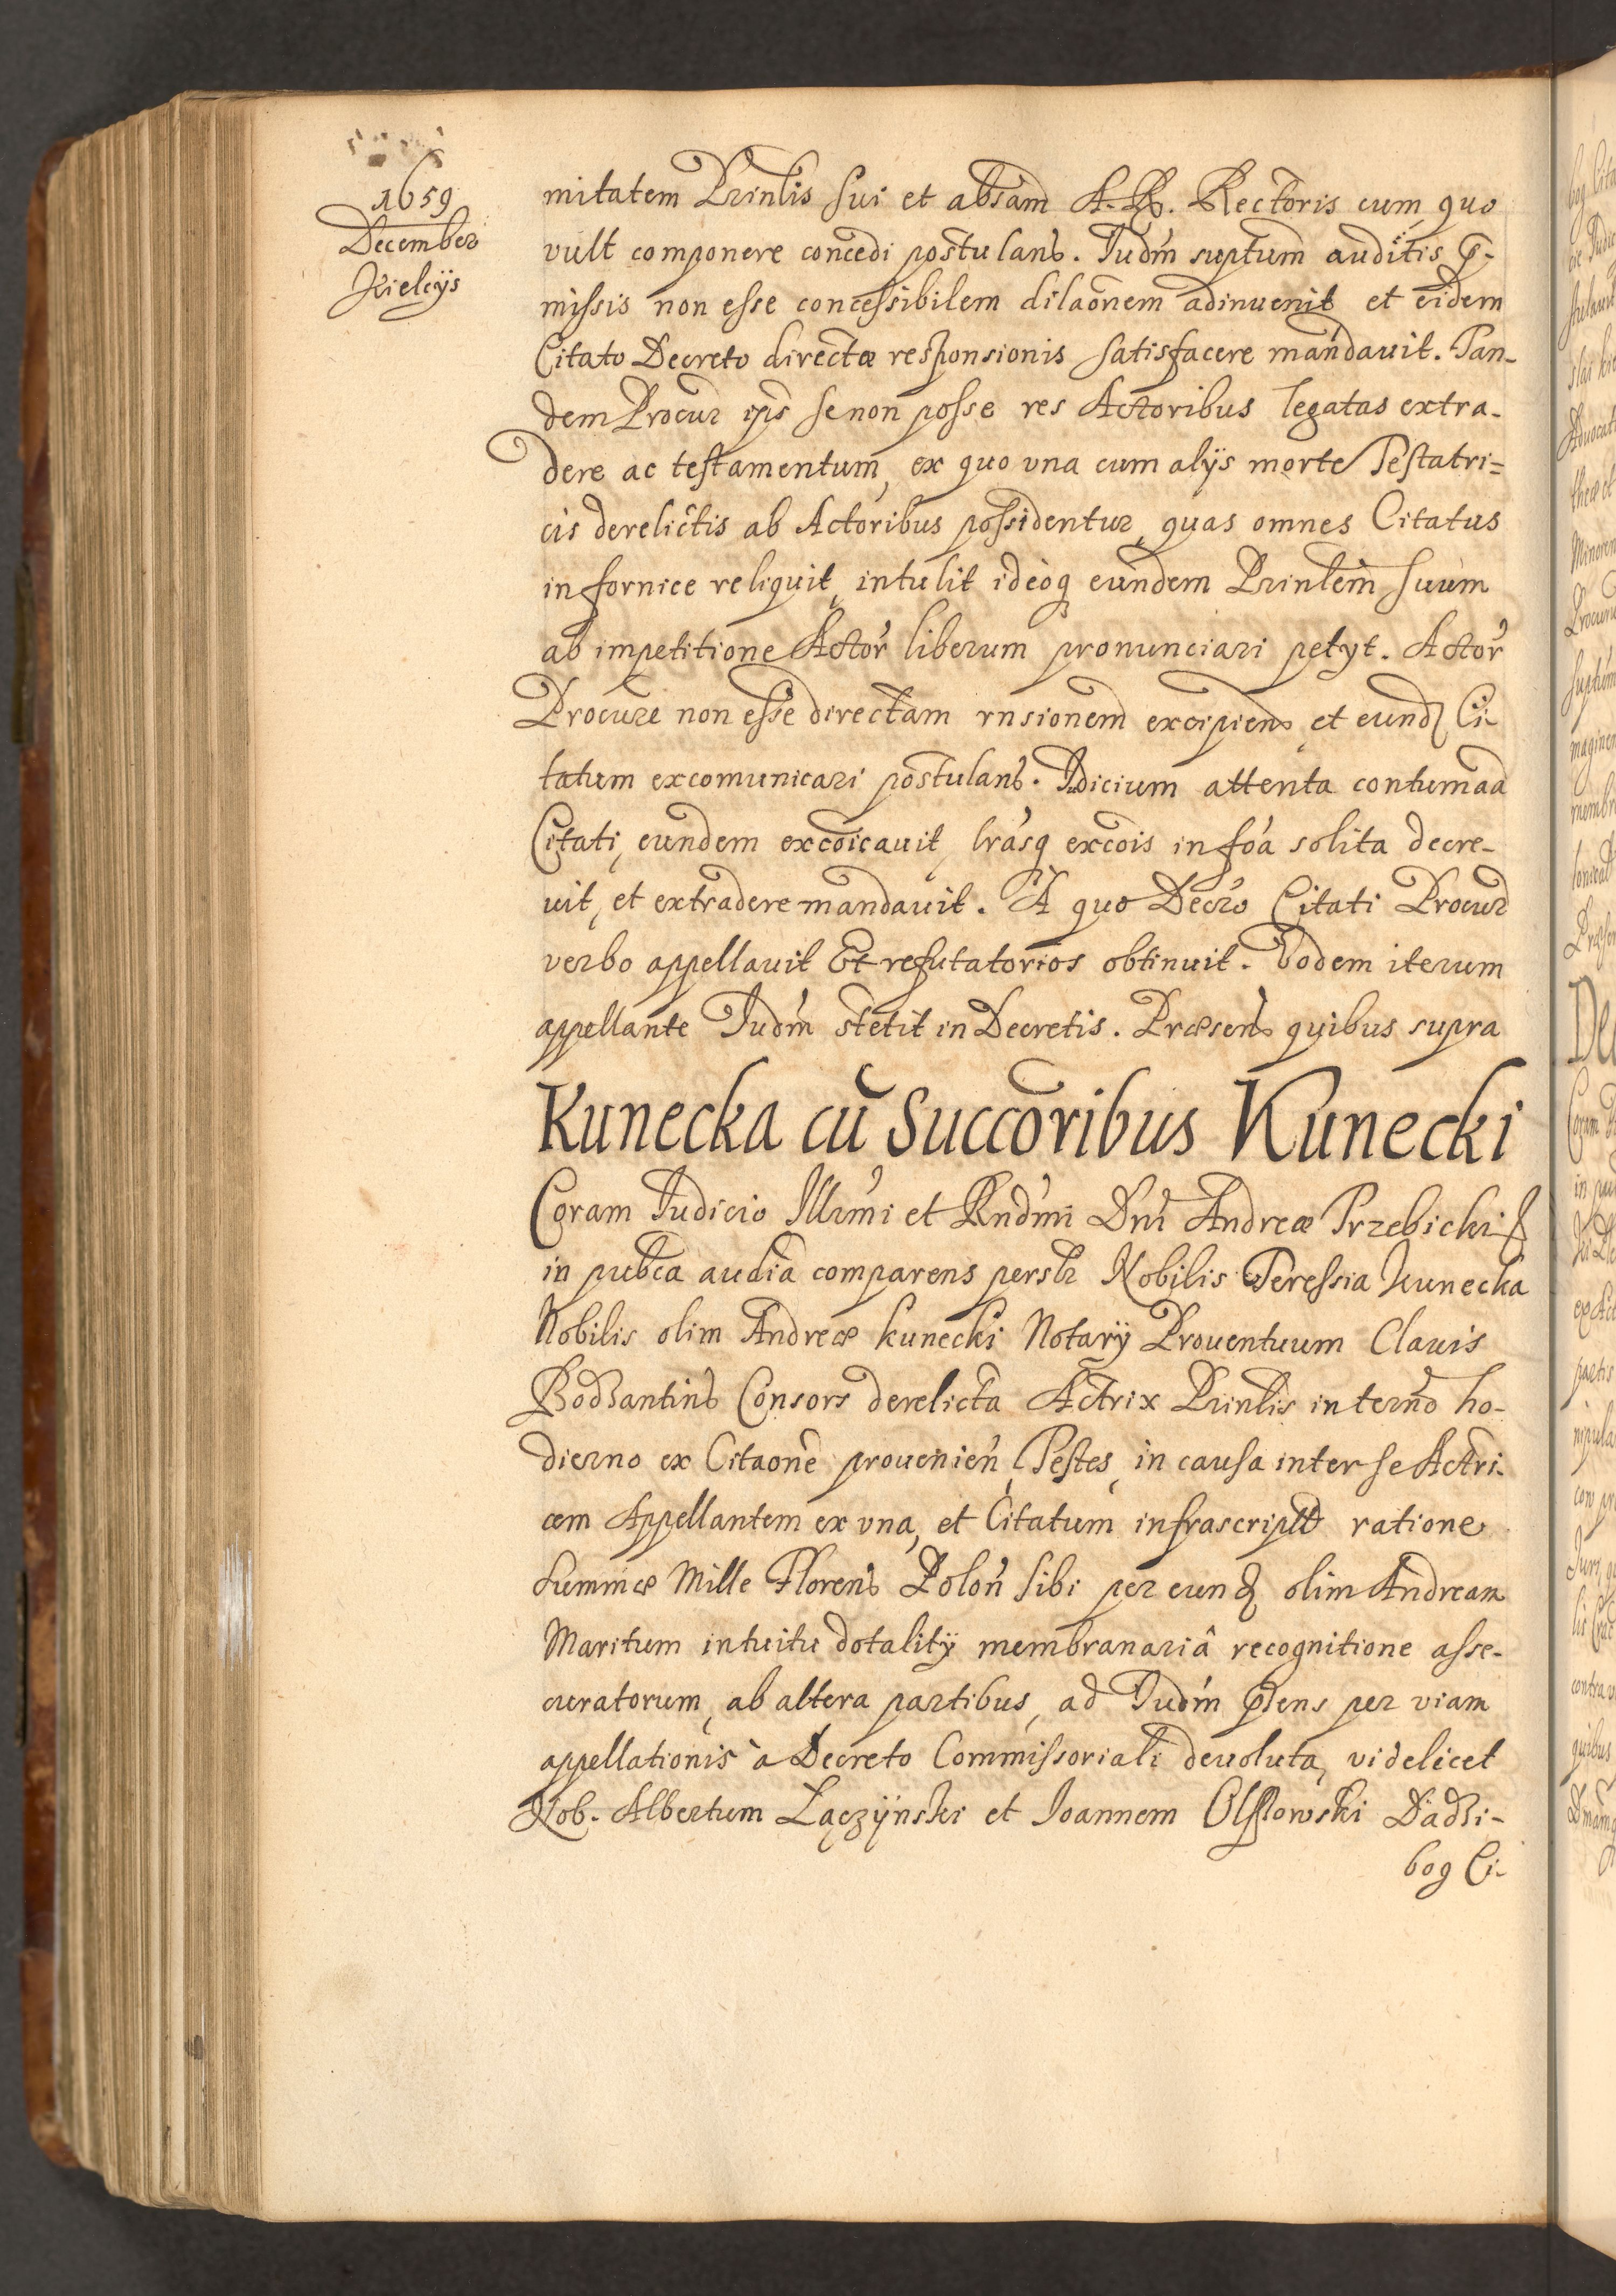 1659
December
Kielcijs
mitatem Prinlis sui et absam A. R. Rectoris cum quo
vult componere concedi postulans. Judm suptum auditis p-
missis non esse concessibilem dilaonem adinuenit et eidem
Citato Decreto directæ responsionis satisfacere mandauit. Tan-
dem Procur ejus se non posse res Actoribus legatas extra-
dere ac testamentum, ex quo vna cum alijs morte Testatri=
cis derelictis ab Actoribus possidentur, quas omnes Citatus
in fornice reliquit, intulit ideoq eundem Prinlem suum
ab impetitione Actor liberum pronunciari petyt. Actor
Procure non esse directam rnsionem excipiens et eund Ci-
tatum excomunicari postulans. Judicium attenta contumacia
Citati, eundem excoicauit, lrasq excois in foa solita decre-
uit, et extradere mandauit. A quo Decro Citati Procur
verbo appellauit Et refutatorios obtinuit. Eodem iterum
appellante Judm stetit in Decretis. Præsens quibus supra
Kunecka cu Succoribus Kunecki
Coram Judicio Illrmi et Rndmi Dni Andreæ Trzebicki
in pubca audia comparens perslr Nobilis Teressia Kunecka
Nobilis olim Andreæ Kunecki Notarij Prouentuum Clauis
Bodzantins Consors derelicta Actrix Prinlis in terno ho-
dierno ex Citaone prouenien, Testes, in causa inter se Actri-
cem Appellantem ex vna, et Citatum infrascript ratione
summæ Mille Florens Polon sibi per eund olim Andream
Maritum intuitu dotalitij membranariâ recognitione asse-
curatorum, ab altera partibus, ad Judm pdens per viam
appellationis à Decreto Commissoriali deuoluta, videlicet
Nob. Albertum Łączyński et Joannem Olszowski Dadzi-
bog Ci-